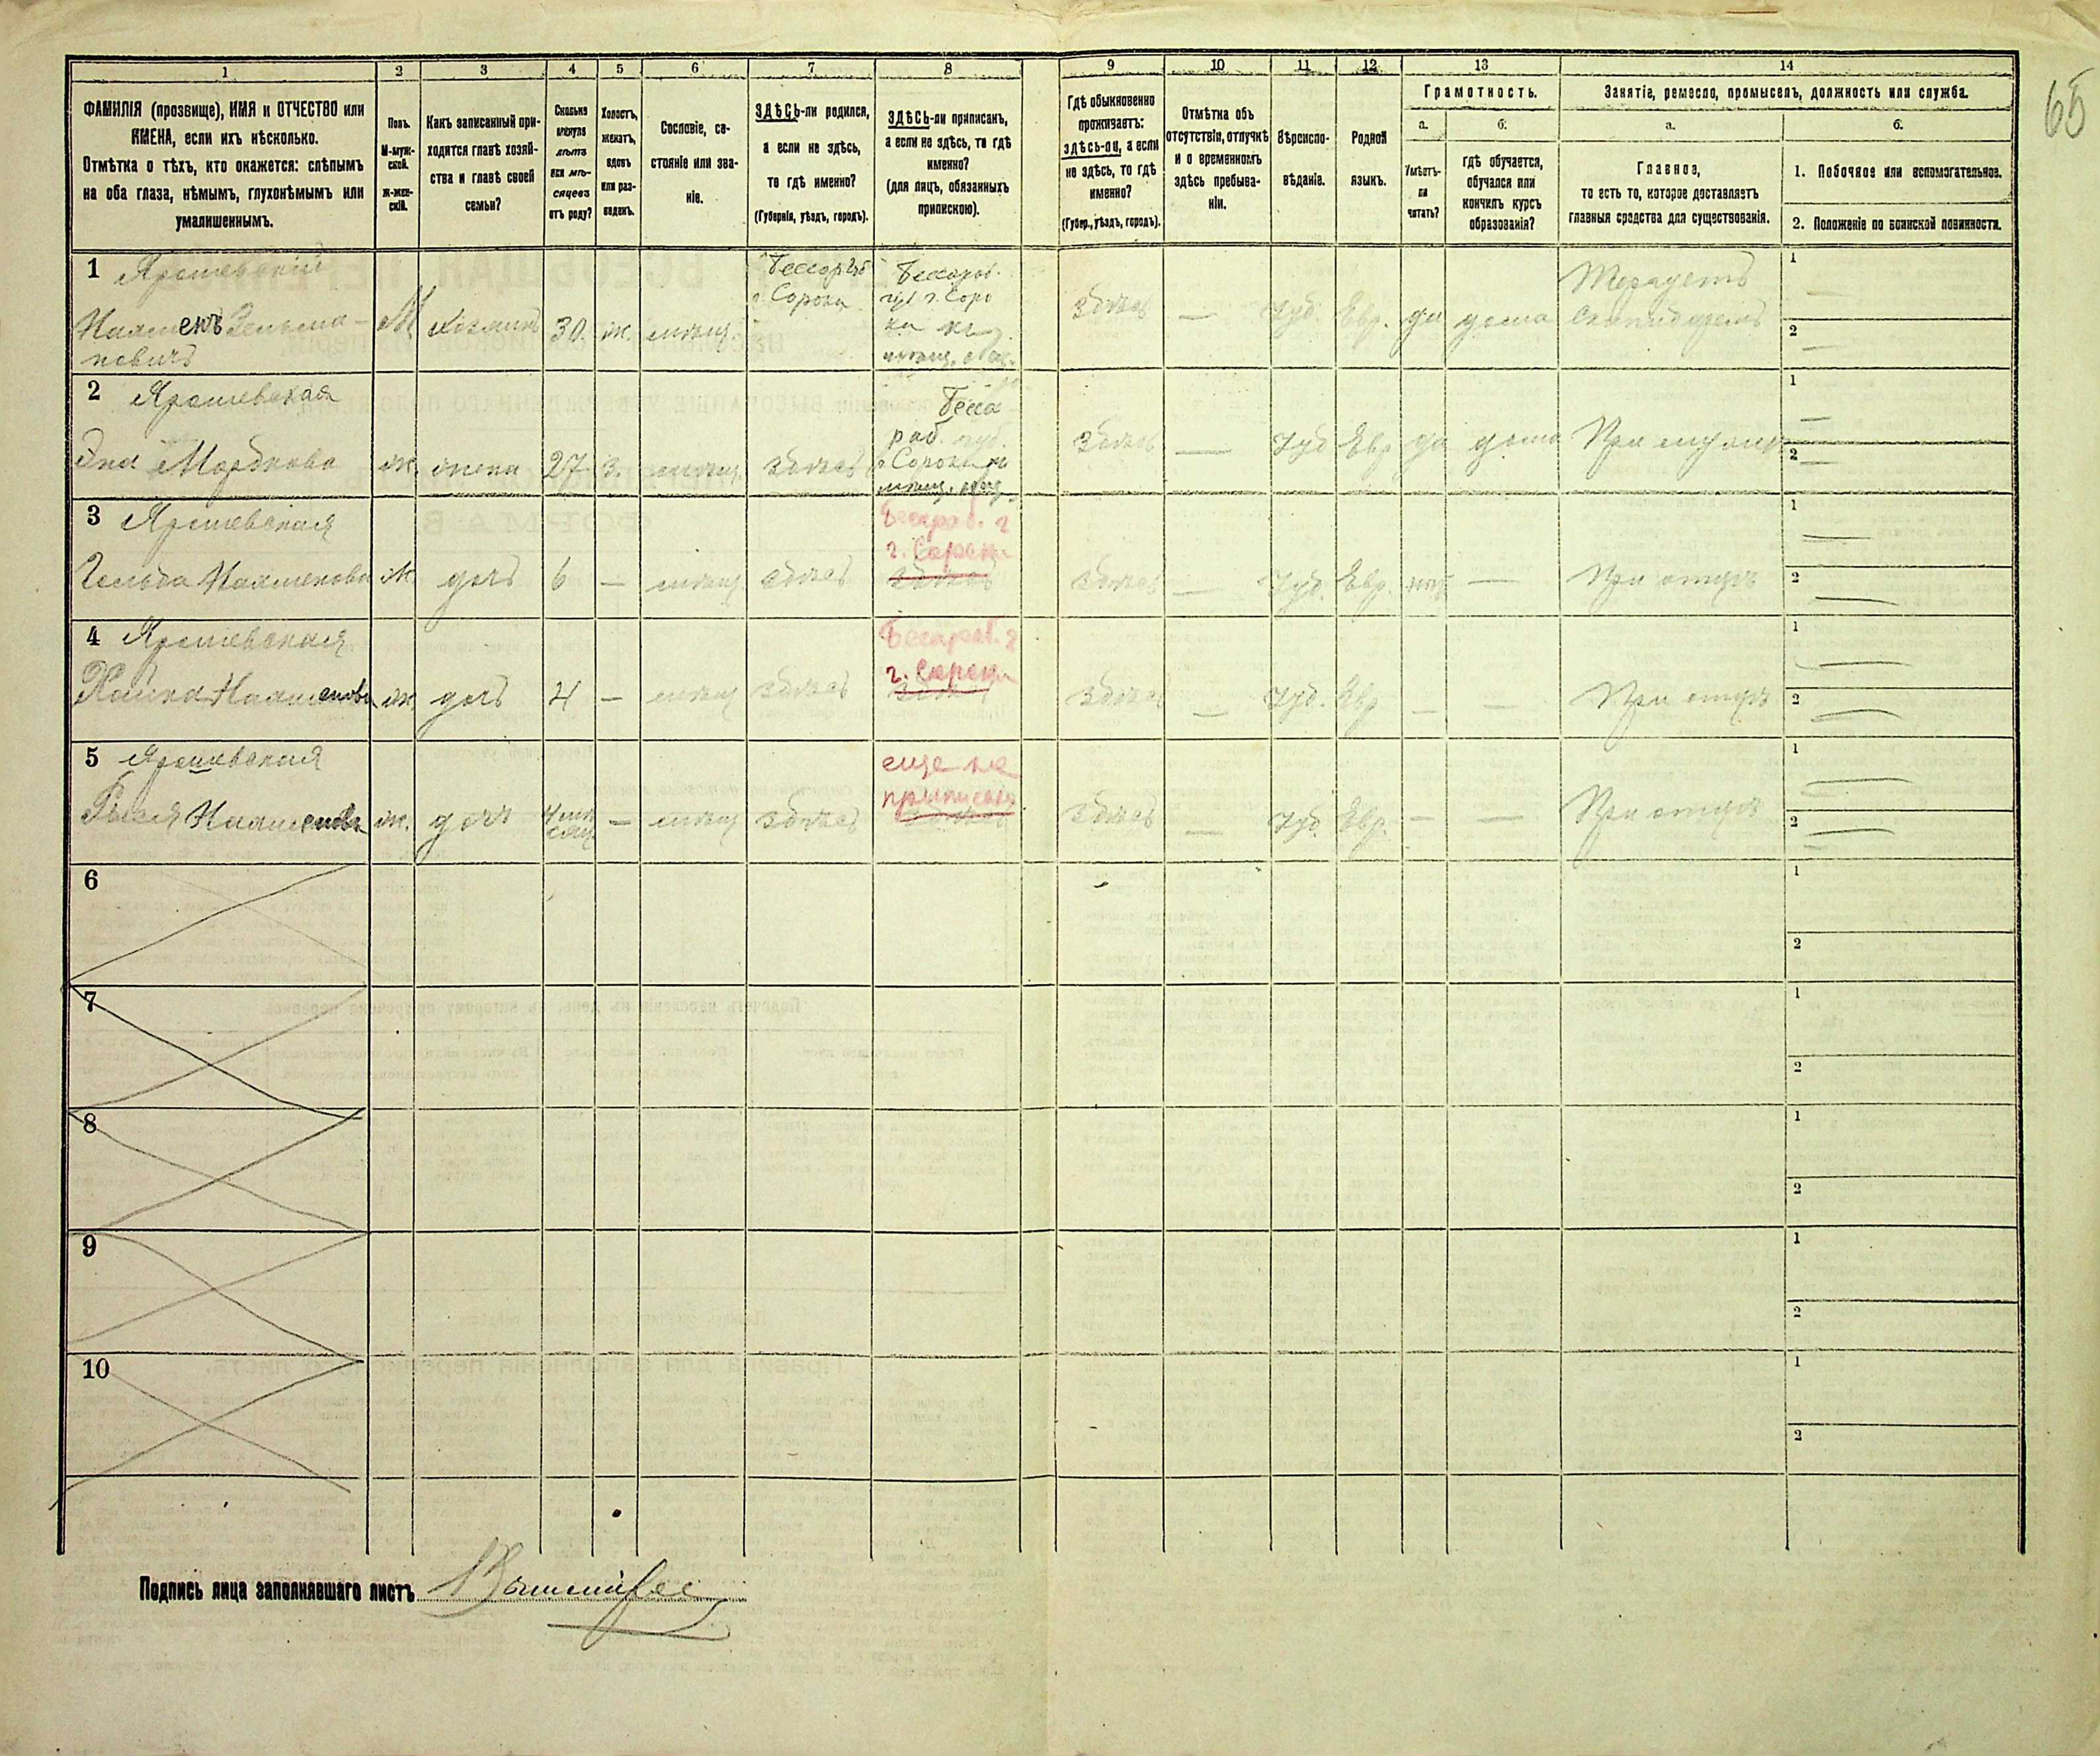 65
1 2 3 4 5 6 7 8 9 10 11 12 13 14
ФАМИЛІЯ (прозвище), ИМЯ и ОТЧЕСТВО или
ИМЕНА, если ихъ нѣсколько.
Отмѣтка о тѣхъ, кто окажется: слѣпымъ
на оба глаза, нѣмымъ, глухонѣмымъ или
умалишеннымъ.
Полъ.
М-муж-
ской.
Ж-жен-
скій.
Какъ записанный при-
ходится главѣ хозяй-
ства и главѣ своей
семьи?
Сколько
минуло
лѣтъ
или мѣ-
сяцевъ
отъ роду?
Холостъ,
женатъ,
вдовъ
или раз-
веденъ.
Сословіе, со-
стояніе или зва-
ніе.
ЗДѢСЬ-ли родился,
а если не здѣсь,
то гдѣ именно?
(Губернія, уѣздъ, городъ).
ЗДѢСЬ-ли приписанъ,
а если не здѣсь, то гдѣ
именно?
(для лицъ, обязанныхъ
припискою).
Гдѣ обыкновенно
проживаетъ:
здѣсь-ли, а если
не здѣсь, то гдѣ
именно?
(Губер., уѣздъ, городъ).
Отмѣтка объ
отсутствіи, отлучкѣ
и о временномъ
здѣсь пребыва-
ніи.
Вѣроиспо-
вѣданіе.
Родной
языкъ.
Грамотность.
а.
Умѣетъ-
ли
читать?
б.
гдѣ обучается,
обучался или
кончилъ курсъ
образованія?
Занятіе, ремесло, промыселъ, должность или служба.
а.
Главное,
то есть то, которое доставляетъ
главныя средства для существованія.
б.
1. Побочное или вспомогательное.
2. Положеніе по воинской повинности.
1 Ярошевскій
Нахменъ Зельма-
новичъ
М хозяинъ 30. ж. мѣщ.
г. Сорока
г. Соро
ки
здѣсь — Іуд. Евр. да дома
1
2
2 Ярошевская
Мордкова
ж. жена 27 з. мѣщ. здѣсь
Бесса
раб. губ.
г. Сороки
мѣщ.
здѣсь — Іуд Евр да дома При мужѣ
1
2
3 Ярошевская
Гольда Нахменова ж дочь 6 — мѣщ. здѣсь
Бессараб. г
г. Сороки
здѣсь
здѣсь — Іуд. Евр. нѣтъ — При отцѣ
1
2
4 Ярошевская
Нахменова ж дочь 4 — мѣщ здѣсь
Бессараб. г
г. Сороки
здѣсь
здѣсь — Іуд. Евр — — При отцѣ
1
2
5 Ярошевская
Нахменова ж. дочь 4 мѣ
сяц — мѣщ здѣсь
еще не
приписана
здѣсь
здѣсь — Іуд. Евр. — — При отцѣ
1
2
6
1
2
7
1
2
8
1
2
9
1
2
10
1
2
Подпись лица заполнявшаго листъ